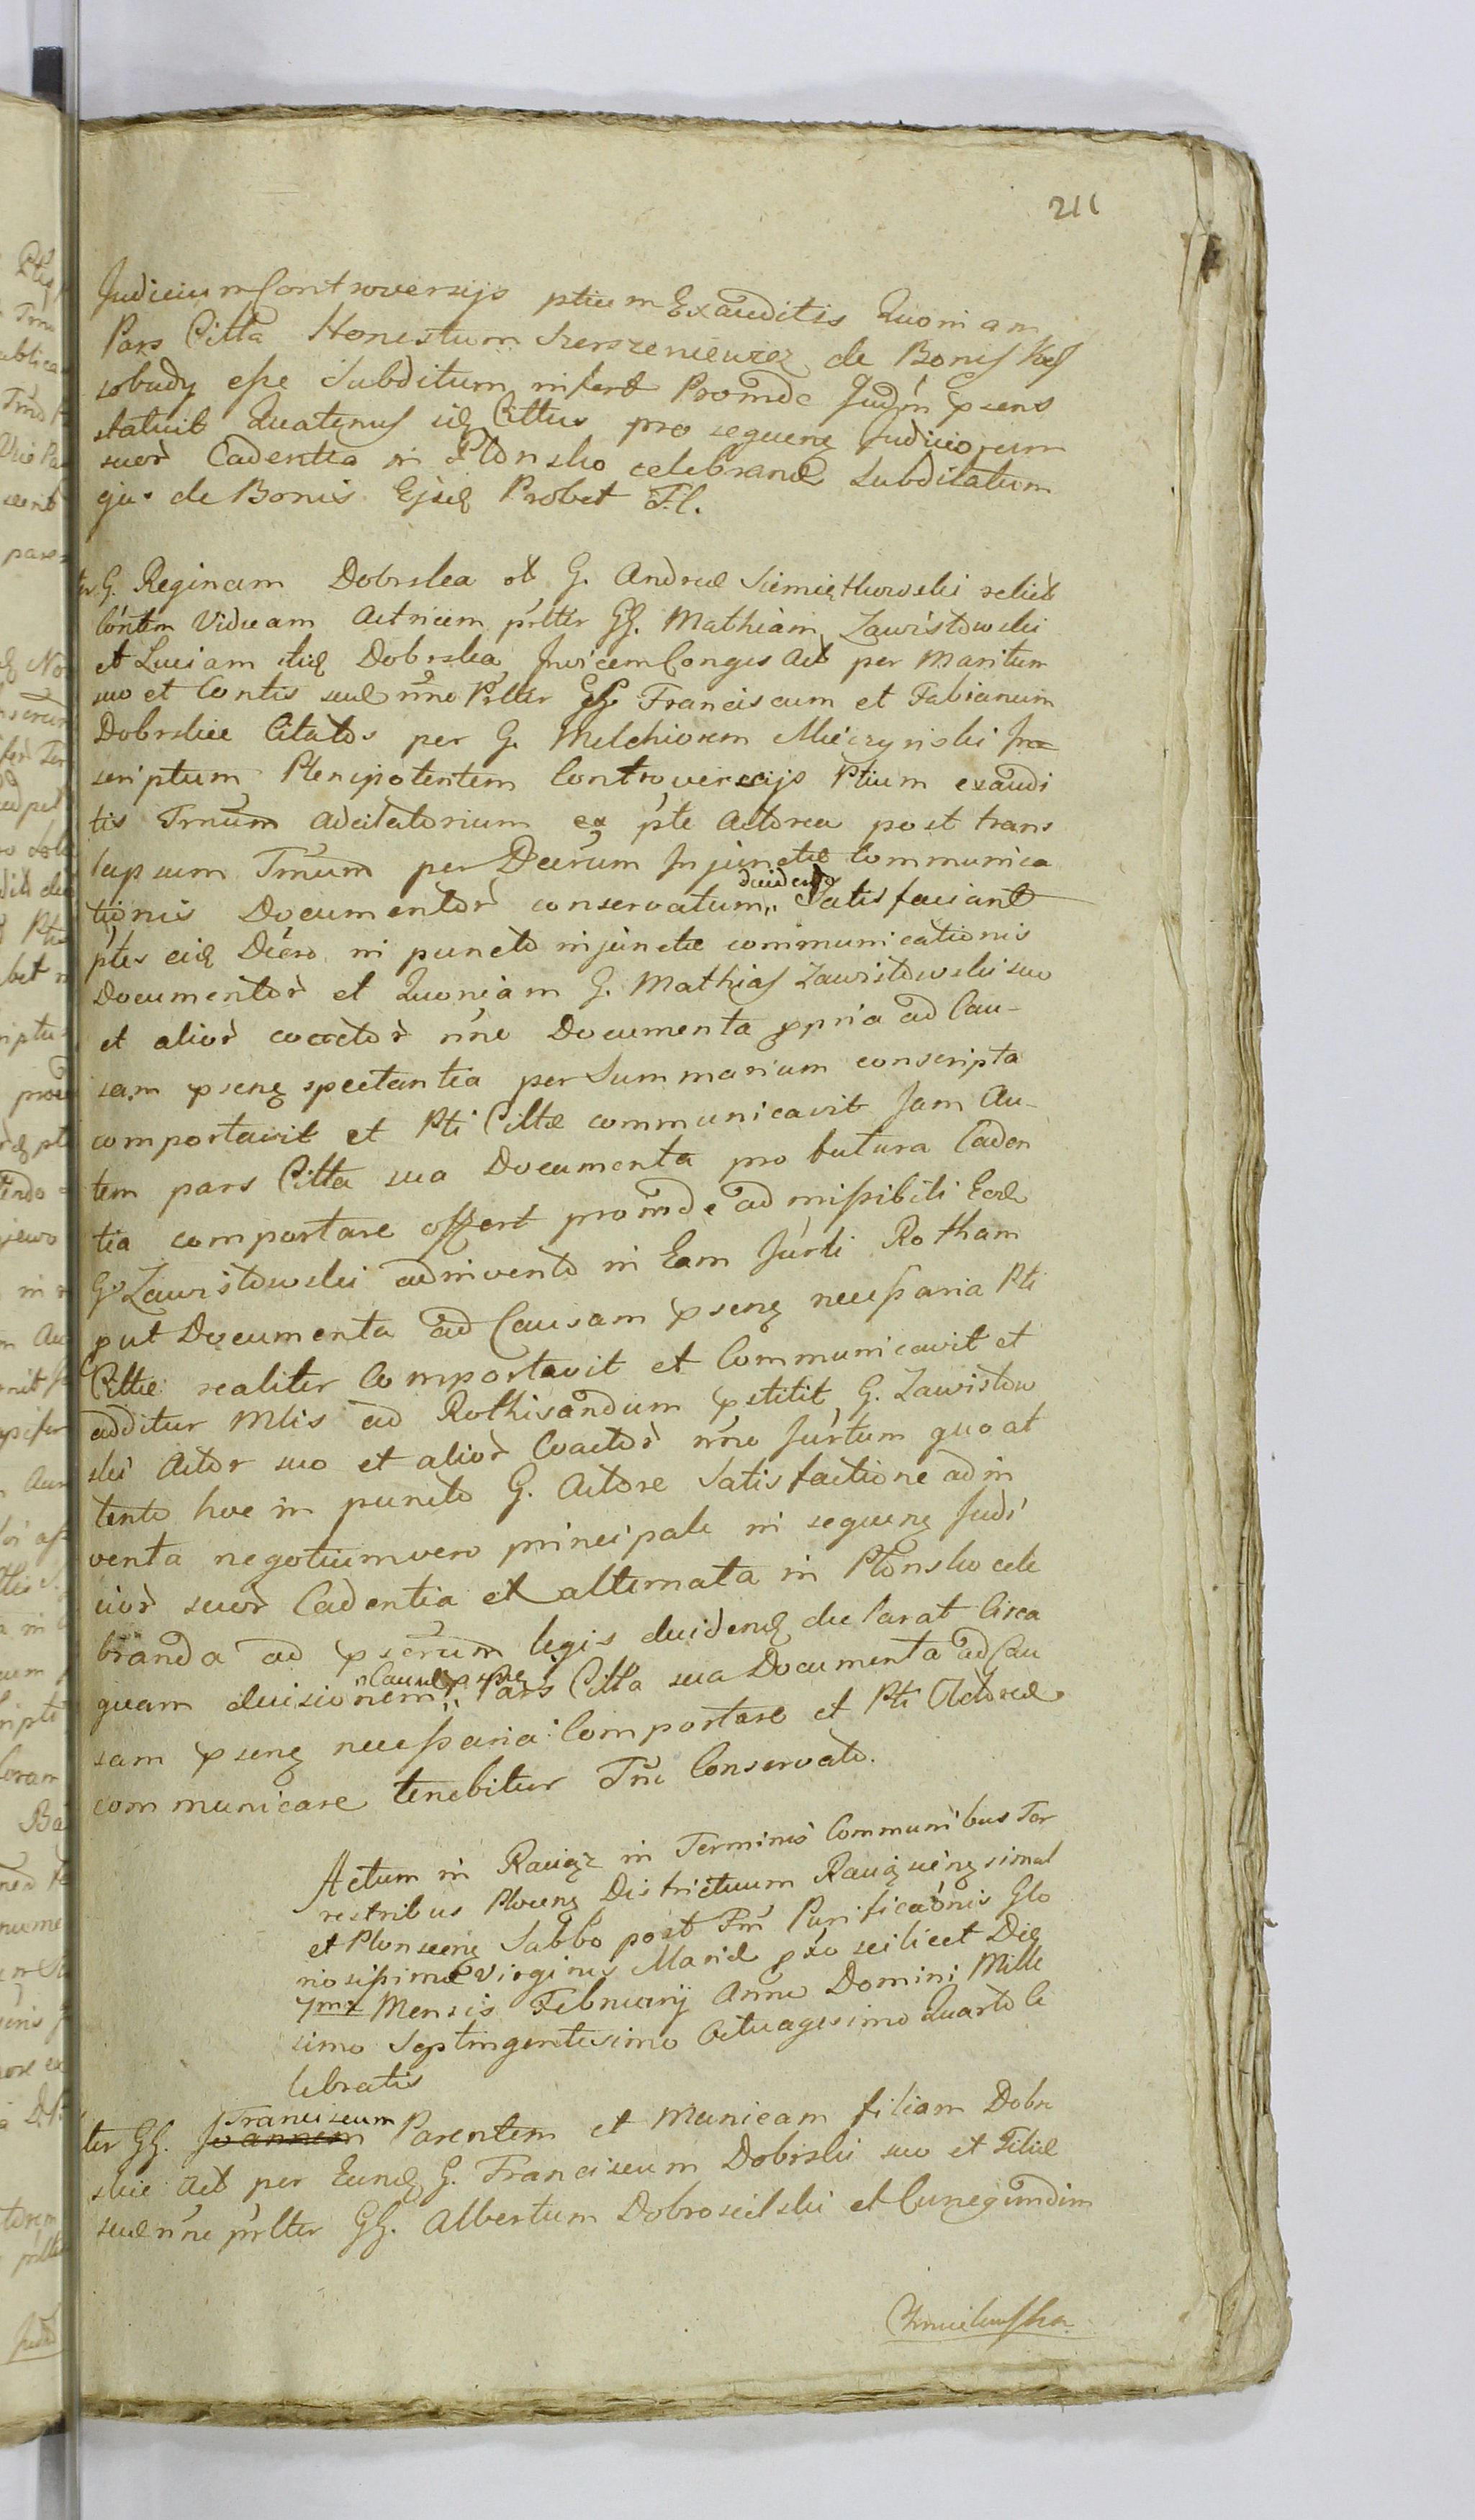 211
Judicium Controversijs ptium Exauditis Quoniam
Pars Citta Honestum Szerszeniewicz de Bonis
esse Subditum infert Proinde Judm psens
statuit Quatenus Cittus pro sequenz Judiciorum
suor Cadentia in Plonsko celebrand Subditatum
ejus de Bonis Ejusq Probet T. C.
G. Reginam Dobrska ol G. Andreæ Siemiątkowski relict
Contem Viduam Actricem prltter GG. Mathiam Zawistowski
et Luciam Dobrska Invicem Conges Act per Maritum
suo et Contis suæ nne Prltter GG. Franciscum et Fabianum
Dobrskie Citatos per G. Melchiorem Mieczynski In
scriptum Plenipotentem Controversijs Ptium exaudi
tis Trnum adcitatorium ex pte Actorea post trans
lapsum Trnum per Decrum Injunctæ Communica
tionis Documentor conservatum,, Satisfaciant
ptes eidq Decro in puncto injunctæ communicationis
Documentor et Quoniam G. Mathias Zawistowski suo
et alior coactor nne Documenta ppria ad Cau-
sam psenz spectantia per Summarium conscripta
comportavit et Pti Cittæ communicavit Jam Au-
tem pars Citta sua Documenta pro futura Caden
tia comportare offert proinde admissibili
G. Zawistowski adinvento in Eam Jurti Rotham
put Documenta ad Causam psenz necessaria Pti
Cittæ realiter Comportavit et Communicavit et
additur Mlis ad Rothisandum pstitit G. Zawistow
ski Actor suo et alior Coactor nne Jurtum quo at
tento hoc in puncto G. Actore Satisfactione adin
venta negotium vero principale in sequenz Judi
cior suor Cadentia et alternata in Plonsko cele
branda ad pscrum legis decidend declarat Circa
quam decisionem,, Pars Citta sua Documenta ad Cau
sam psenz necessaria Comportare et Pti Actoreæ
communicare tenebitur Trno Conservato.
Actum in Raciąż in Terminis Communibus Ter
restribus Plocenz Districtuum Raciązienz simul
et Plonscenz Sabbo post Fm Purificaonis Glo
riosissimæ Virginis Mariæ pxo scilicet Die
7ma Mensis Februarij Anno Domini Mille
simo Septingentesimo Octuagesimo Quarto Ce
lebratis
ter GG. Joannem Franciscum Parentem et Municam filiam Dobr
skie Act per Eundq G. Franciscum Dobrski suo et Filiæ
suæ nne prltter GG. Albertum Dobrosielski et Cunegundim